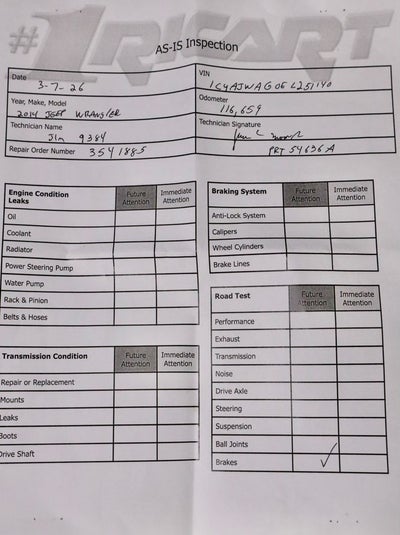 #1 RICART
AS-IS Inspection
Date
3-7-26
VIN
1C4AJWAG0EL251140
Year, Make, Model
2014 JEEP WRANGLER
Odometer
116,659
Technician Name
Jim 9384
Technician Signature
Repair Order Number 3541885
PRT 54636A
Engine Condition Future Attention Immediate Attention
Leaks
Oil
Coolant
Radiator
Power Steering Pump
Water Pump
Rack & Pinion
Belts & Hoses
Transmission Condition Future Attention Immediate Attention
Repair or Replacement
Mounts
Leaks
Boots
Drive Shaft
Braking System Future Attention Immediate Attention
Anti-Lock System
Calipers
Wheel Cylinders
Brake Lines
Road Test Future Attention Immediate Attention
Performance
Exhaust
Transmission
Noise
Drive Axle
Steering
Suspension
Ball Joints
Brakes ✓